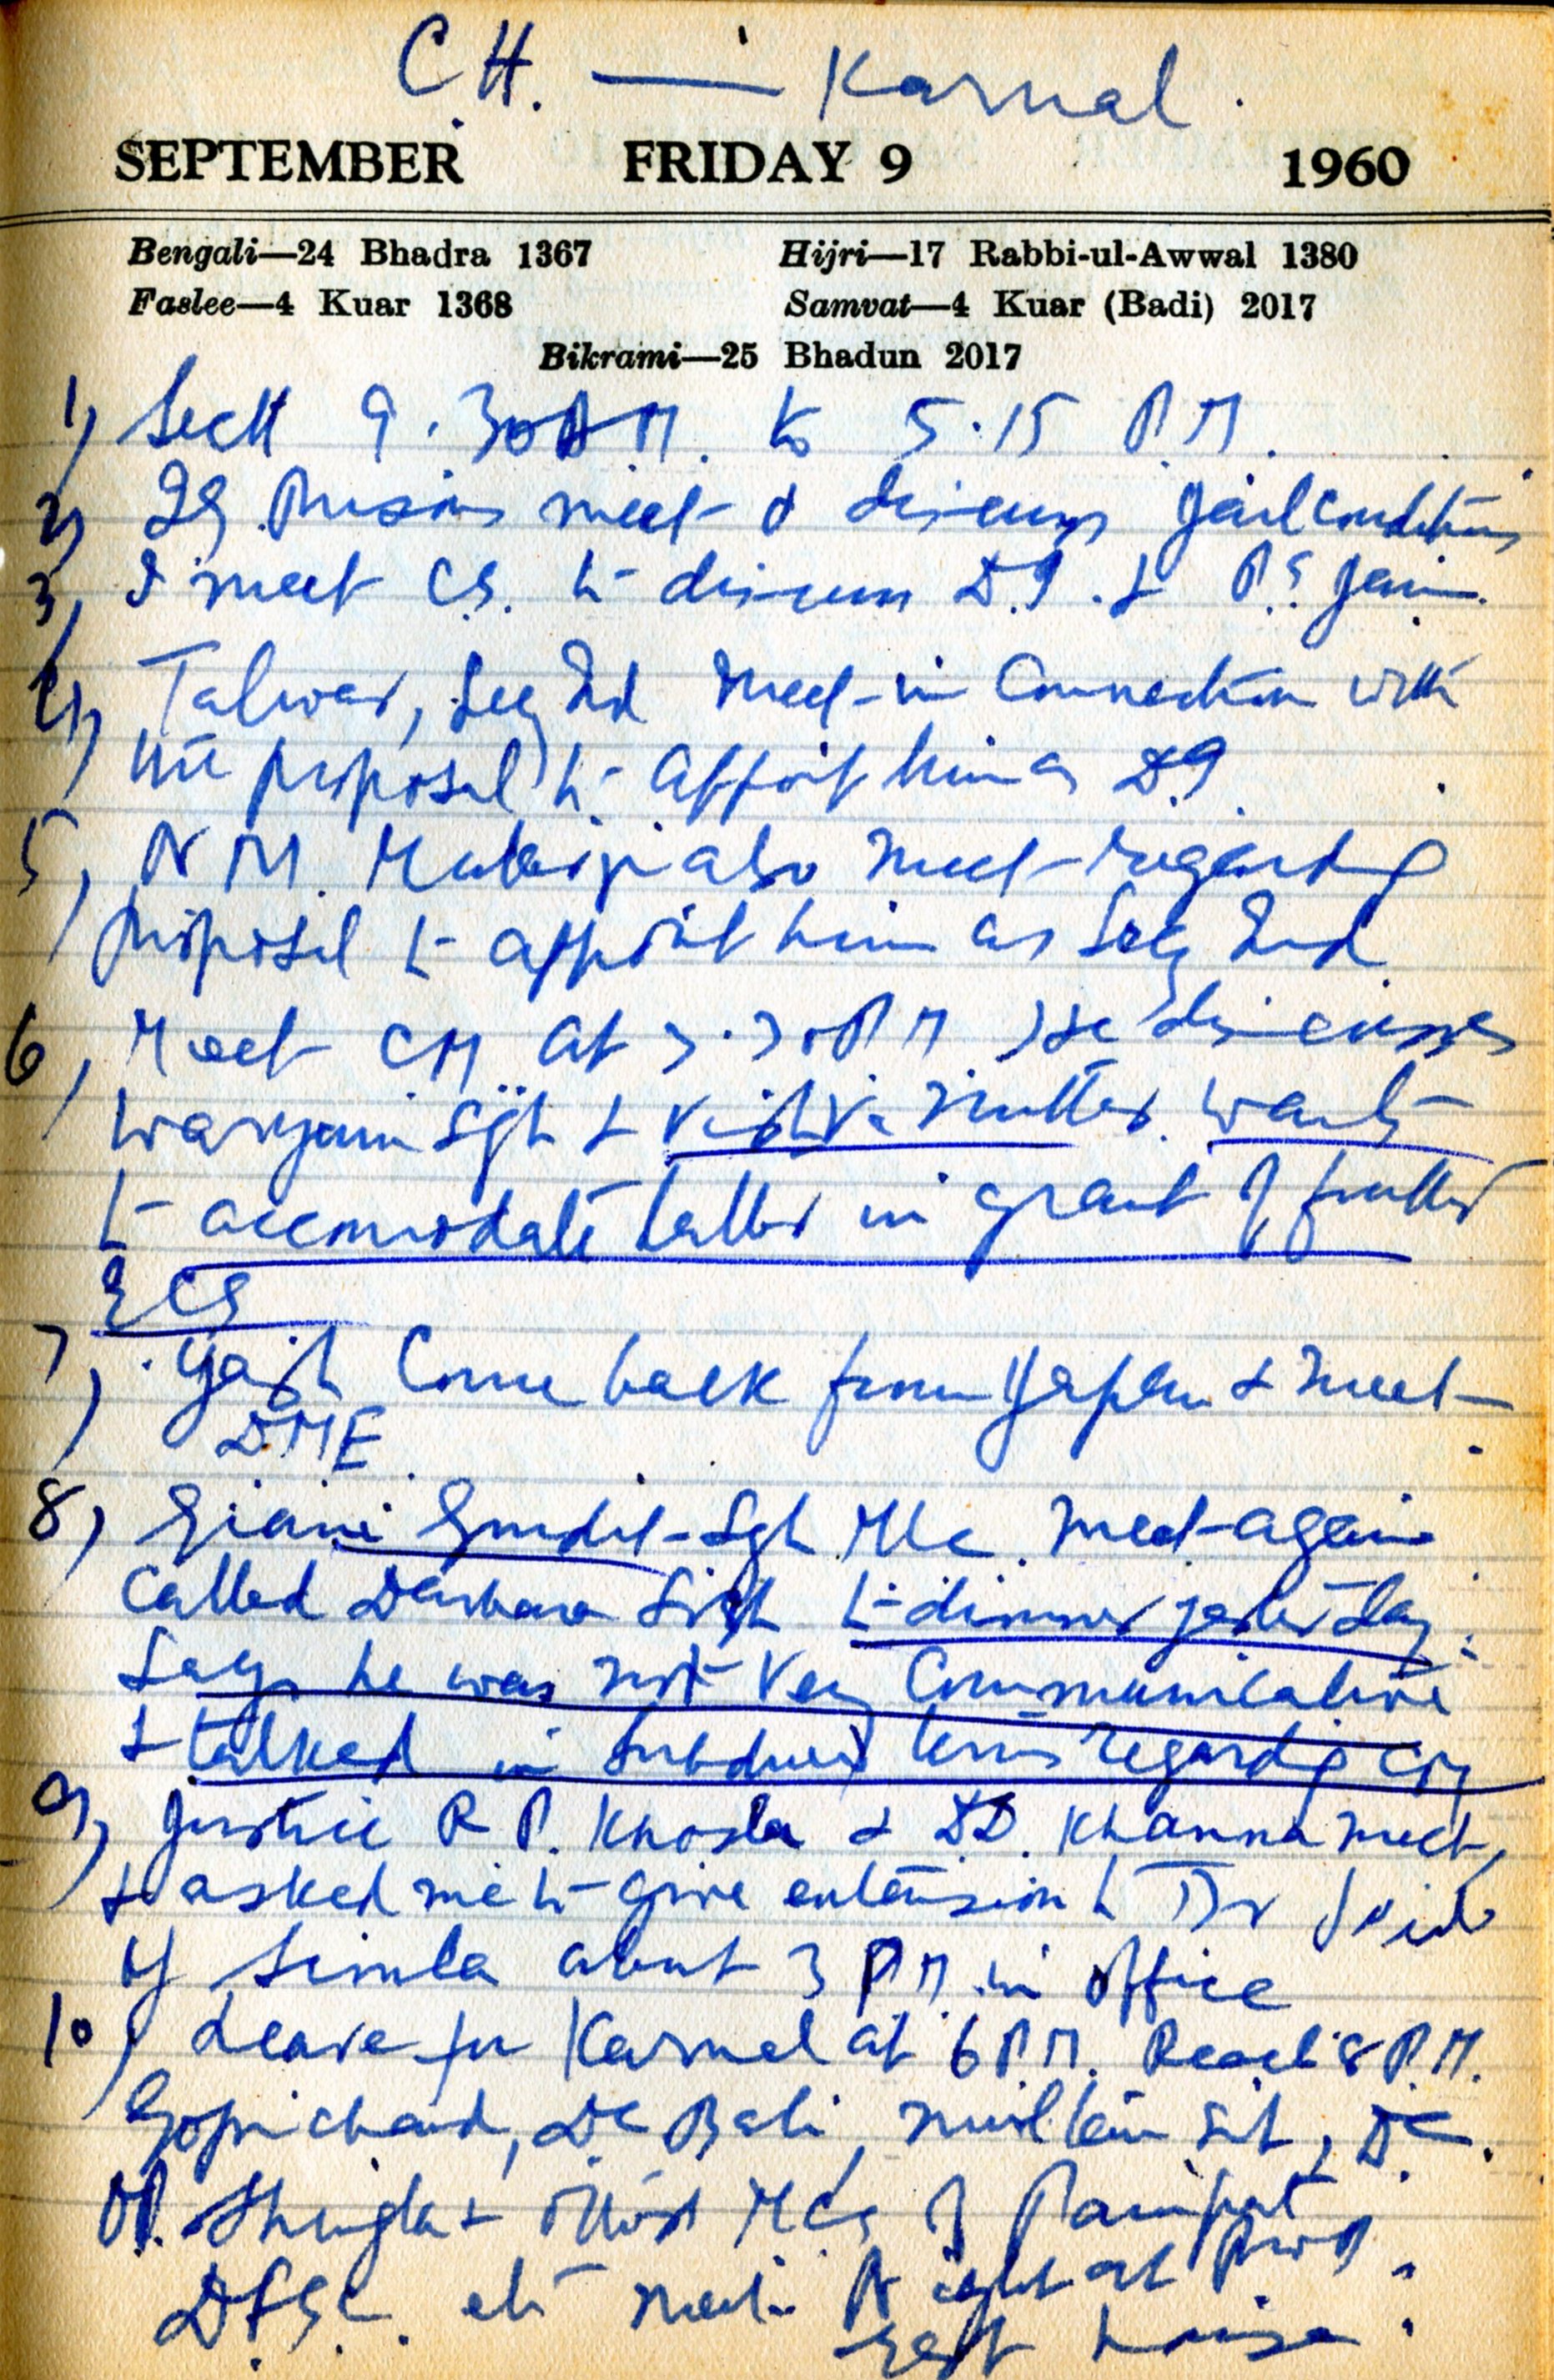 CH. — Karnal.
SEPTEMBER FRIDAY 9 1960
Bengali—24 Bhadra 1367 Hijri—17 Rabbi-ul-Awwal 1380
Faslee—4 Kuar 1368 Samvat—4 Kuar (Badi) 2017
Bikrami—25 Bhadun 2017
1) Sectt 9.30 A M. to 5.15 P.M.
2) IG Prisons meet & discuss Jail conditions
3) I meet CS. to discuss D.I. & P.S. Jain.
4) Talwar, Secy Ind meet in Connection with
the proposal to appoint him as D.I.
5) N M. Mukerji also meet regarding
proposal to appoint him as Secy Ind
6) Meet CM at 3.30 P M He discusses
Waryam Sgh & wants
to accomodate latter in grant of further
7) Yash Come back from Japan & meet
DME.
8) Giani Gurdit Sgh MLC. meet again
Called Darbara Singh to dinner yesterday.
Says he was not very Communicative
& talked in subdued terms regarding CM
9) Justice R P. Khosla & D.D. Khanna meet,
& asked me to give extension to Dr
of Simla about 3 P M. in office
10) Leave for Karnal at 6 P.M. Reach 8 P.M.
Gopichand, DC Bali, Sgh, DC.
OP. Shingla & other MCs of Panipat
etc meet. Night at PWD
rest house.